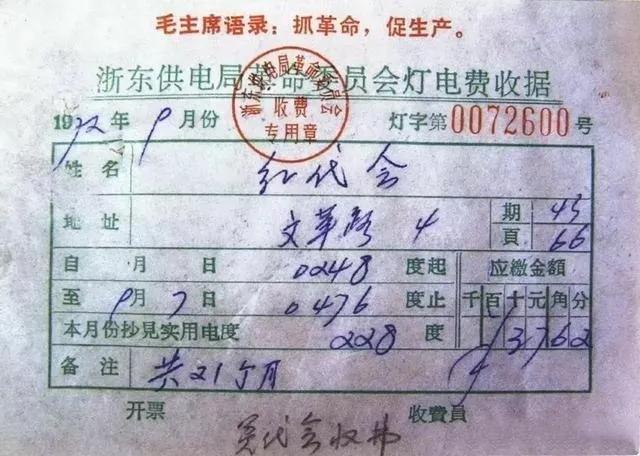 毛主席语录：抓革命，促生产。
浙东供电局革命委员会灯电费收据
浙东供电局革命委员会
收费
专用章
1972年9月份 灯字第0072600号
姓名 红代会
地址 文革路 4 期 45
頁 66
自 月 日 0248 度起 应缴金額
至 9月7日 0476 度止 千百十元角分
本月份抄見实用电度 228 度 3762
备注 共21个月
开票 收費員
代会收弗